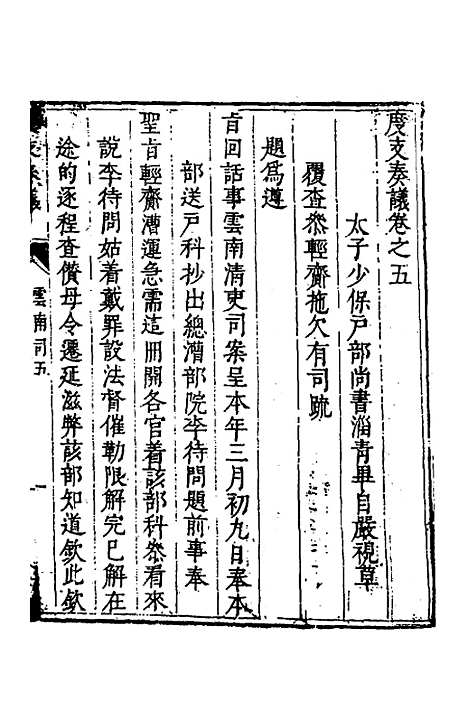 度支奏議卷之五
太子少保戶部尚書淄青畢自嚴視草
覆查叅輕齎拖欠有司疏
題爲遵
旨回話事雲南清吏司案呈本年三月初九日奉本
部送戶科抄出總漕部院李待問題前事奉
聖旨輕齎漕運急需造冊開各官着該部科叅看來
說李待問姑着戴罪設法督催勒限解完已解在
途的逐程查儧毋令遷延滋弊該部知道欽此欽
雲南司五
一